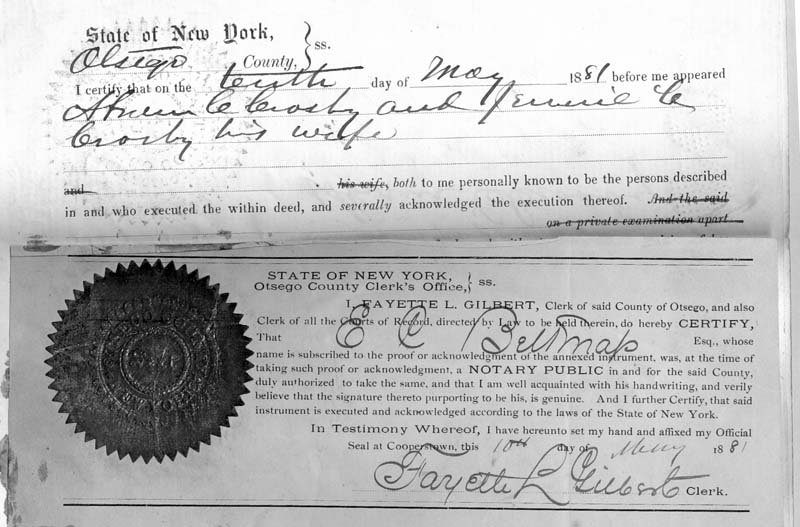 State of New York,
Otsego County, } ss.
I certify that on the tenth day of May 1881 before me appeared
C Crosby and Jennie C
Crosby his wife
and his wife, both to me personally known to be the persons described
in and who executed the within deed, and severally acknowledged the execution thereof. And the said
on a private examination apart
STATE OF NEW YORK,
Otsego County Clerk's Office, } ss.
I, FAYETTE L. GILBERT, Clerk of said County of Otsego, and also
Clerk of all the Courts of Record, directed by Law to be held therein, do hereby CERTIFY,
That E C Belknap Esq., whose
name is subscribed to the proof or acknowledgment of the annexed instrument, was, at the time of
taking such proof or acknowledgment, a NOTARY PUBLIC in and for the said County,
duly authorized to take the same, and that I am well acquainted with his handwriting, and verily
believe that the signature thereto purporting to be his, is genuine. And I further Certify, that said
instrument is executed and acknowledged according to the laws of the State of New York.
In Testimony Whereof, I have hereunto set my hand and affixed my Official
Seal at Cooperstown, this 10th day of May 1881
Fayette L Gilbert Clerk.